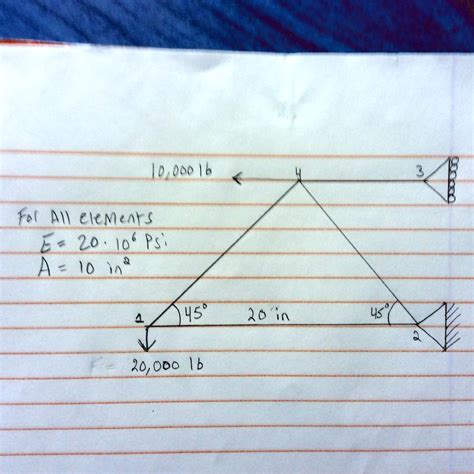 10,000 lb
4
3
For All elements
E = 20 · 10⁶ Psi
A = 10 in²
1
45°
20 in
45°
2
20,000 lb